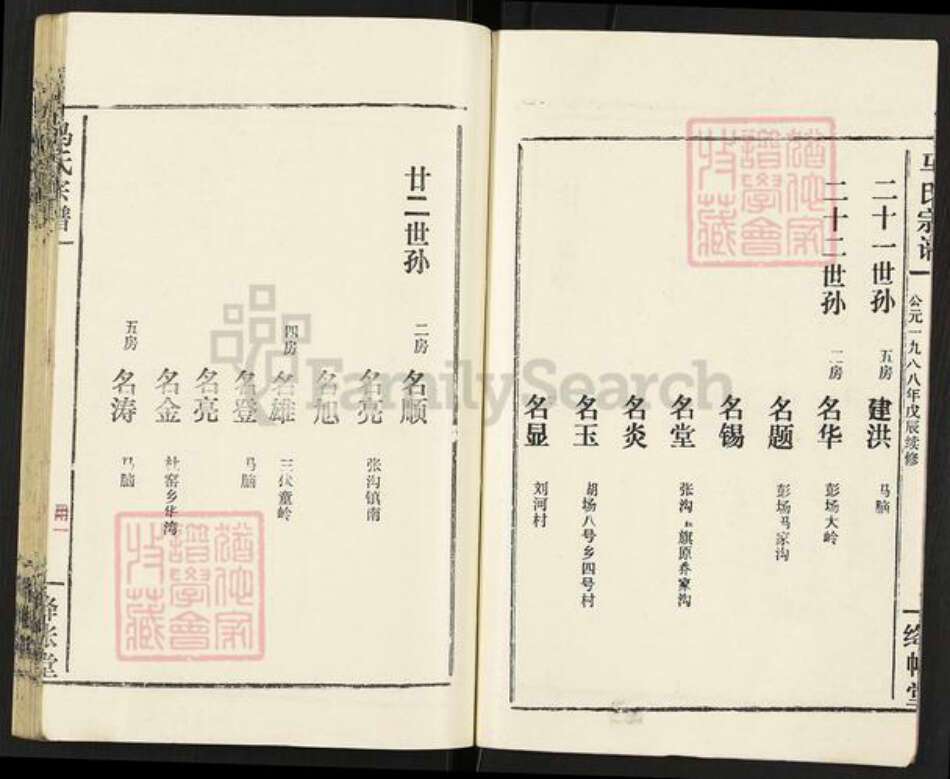 马氏宗谱
公元一九八八年戊辰续修
绛帐堂
二十一世孙
五房
建洪
马脑
二十二世孙
二房
名华
彭场大岭
名题
彭场马家沟
名锡
名堂
张沟
旗原养家沟
名炎
名玉
胡场八号乡四号村
名显
刘河村
廿二世孙
二房
名顺
名亮
张沟镇南
名旭
四房
名雄
三伏童岭
名登
马脑
名亮
名金
杜窑乡华湾
五房
名涛
马脑
冯氏宗谱
绛帐堂
谱學會
收藏
FamilySearch